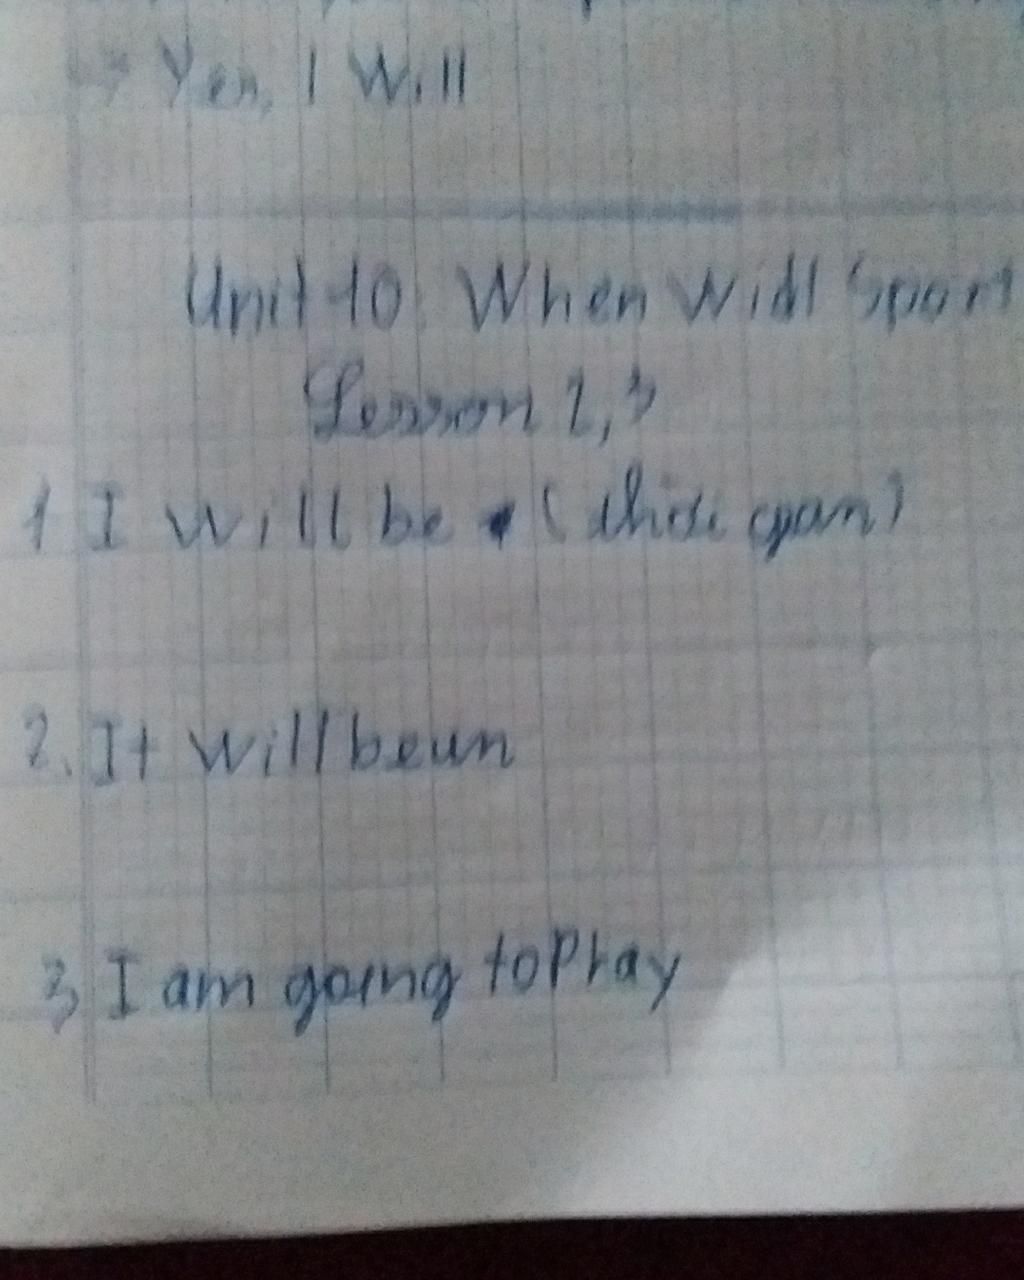 → Yes, I Will
Unit 10. When Will Sport
Lesson 2,3
1 I will be (thời gian)
2. It will be un
3, I am going to Play